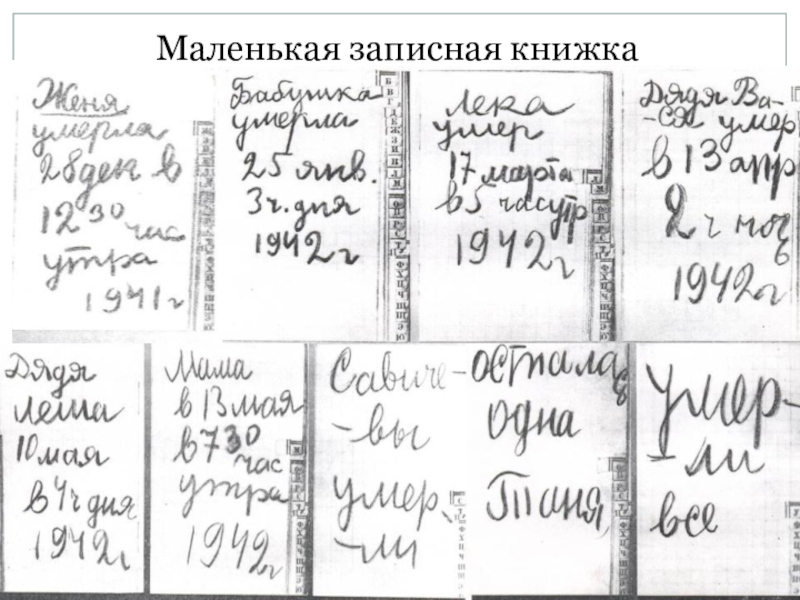 Маленькая записная книжка
Женя
умерла
28 дек в
12 30 час
утра
1941 г
Бабушка
умерла
25 янв.
3ч. дня
1942 г
Лека
умер
17 марта
в 5 час утр
1942 г
Дядя Ва-
-ся умер
в 13 апр
2 ч ноч
1942 г
Дядя
Леша
10 мая
в 4 ч дня
1942 г
Мама
в 13 мая
в 7 30
час
утра
1942 г
Савиче-
-вы
умер-
-ли
осталась
одна
Таня
Умер-
-ли
все